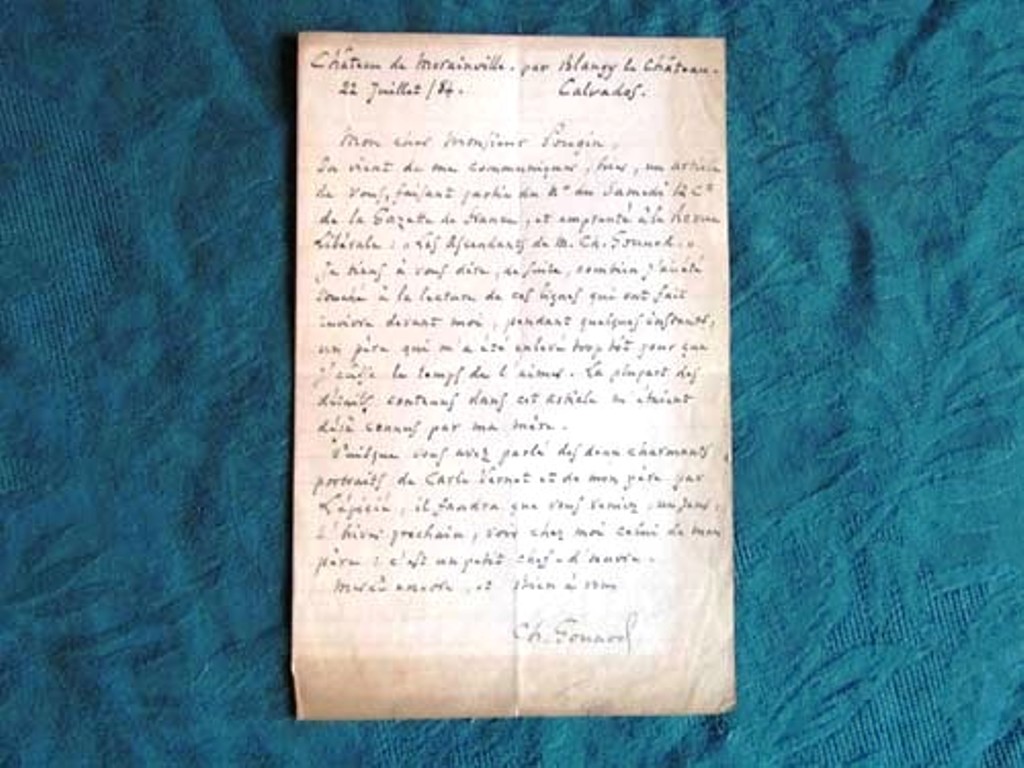 Château de Morainville. par Blangy le Château.
22 Juillet /84. Calvados.
Mon cher Monsieur Pougin,
On vient de me communiquer, hier, un article
de vous, faisant partie du N° du Samedi 12 Ct
de la Gazette de France, et emprunté à la Revue
Libérale : "Les Ascendants de M. Ch. Gounod."
Je tiens à vous dire, de suite, combien j'ai été
touché à la lecture de ces lignes qui ont fait
revivre devant moi, pendant quelques instants,
un père qui m'a été enlevé trop tôt pour que
j'aie eu le temps de l'aimer. La plupart des
détails contenus dans cet article m'étaient
déjà connus par ma mère.
Puisque vous avez parlé des deux charmants
portraits de Carle Vernet et de mon père par
il faudra que vous veniez, un jour,
l'hiver prochain, voir chez moi celui de mon
père : c'est un petit chef-d'œuvre.
Merci encore, et bien à vous
Ch. Gounod